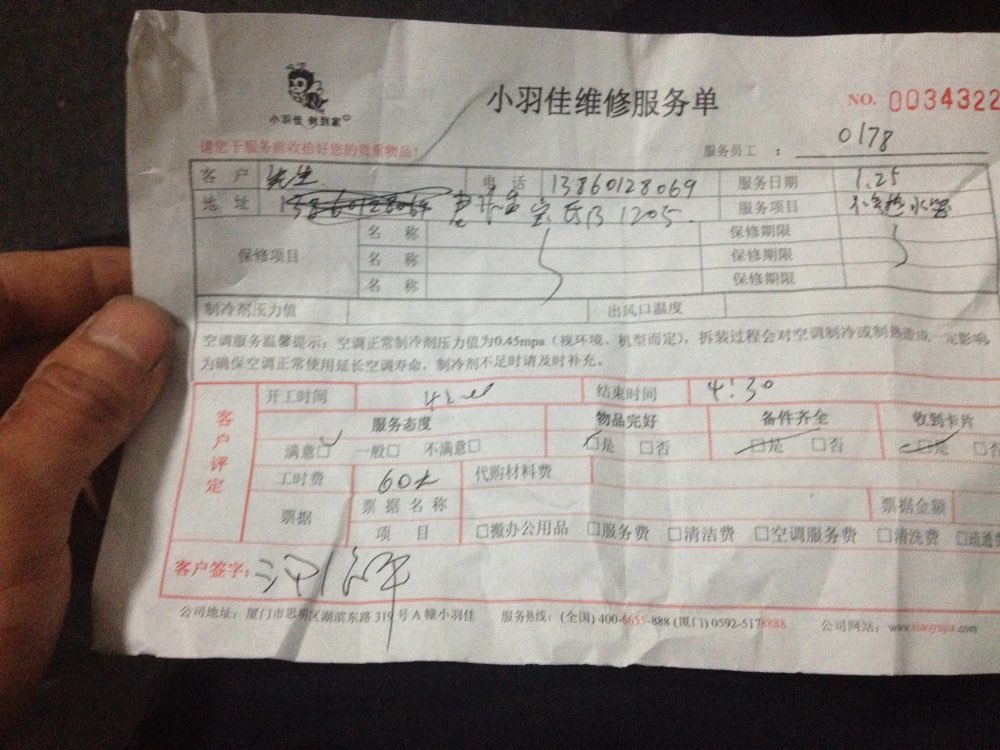 小羽佳维修服务单
NO. 0034322
小羽佳 做到家
请您于服务前收拾好您的贵重物品!
服务员工 : 0178
客户 先生 电话 13860128069 服务日期 1.25
地址 1205 服务项目
保修项目 名称 保修期限
名称 保修期限
名称 保修期限
制冷剂压力值 出风口温度
空调服务温馨提示:空调正常制冷剂压力值为0.45mpa(视环境、机型而定),拆装过程会对空调制冷或制热造成一定影响,
为确保空调正常使用延长空调寿命,制冷剂不足时请及时补充。
客户评定
开工时间 结束时间 4:30
服务态度 物品完好 备件齐全 收到卡片
满意□ 一般□ 不满意□ □是 □否 □是 □否 □是 □否
工时费 60元 代购材料费
票据 票据名称 票据金额
项目 □搬办公用品 □服务费 □清洁费 □空调服务费 □清洗费 □疏通费
客户签字:
公司地址:厦门市思明区湖滨东路319号A幢小羽佳 服务热线:(全国)400-6655-888 (厦门)0592-5178888 公司网站:www.xiaoyujia.com